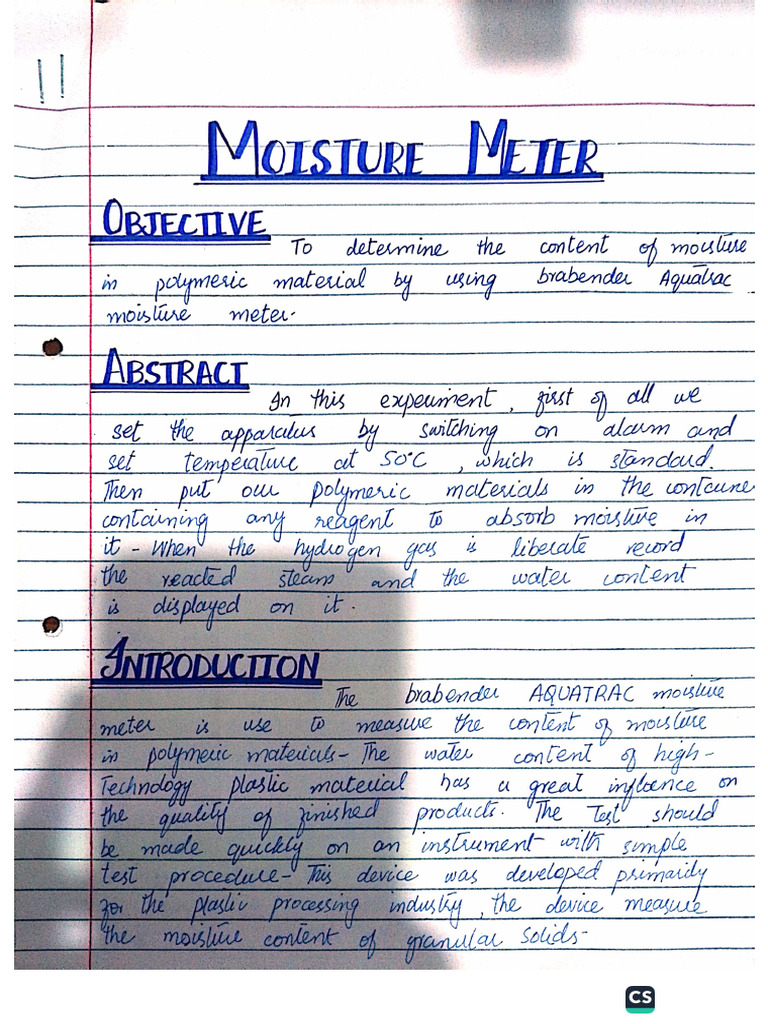 11
MOISTURE METER
OBJECTIVE
To determine the content of moisture
in polymeric material by using brabender Aquatrac
moisture meter.
ABSTRACT
In this experiment, first of all we
set the apparatus by switching on alarm and
set temperature at 50°C, which is standard.
Then put our polymeric materials in the container
containing any reagent to absorb moisture in
it - When the hydrogen gas is liberate record
the reacted steam and the water content
is displayed on it.
INTRODUCTION
The brabender AQUATRAC moisture
meter is use to measure the content of moisture
in polymeric materials - The water content of high-
Technology plastic material has a great influence on
the quality of finished products. The Test should
be made quickly on an instrument with simple
test procedure - This device was developed primarily
for the plastic processing industry, the device measure
the moisture content of granular solids -
CS